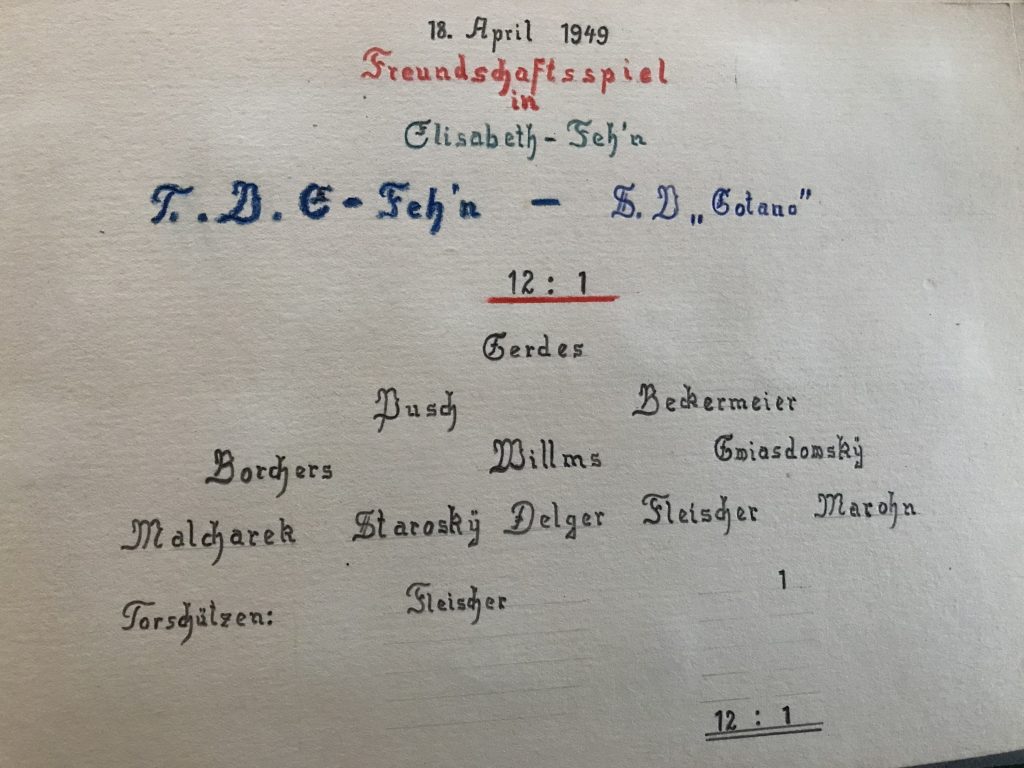 18. April 1949
Freundschaftsspiel
in
Elisabeth-Feh'n
T.V. E-Feh'n - S.V „Gotano”
12 : 1
Gerdes
Pusch Beckermeier
Borchers Willms Gwiasdowskÿ
Malcharek Staroskÿ Delger Fleischer Marohn
Torschützen: Fleischer 1
12 : 1